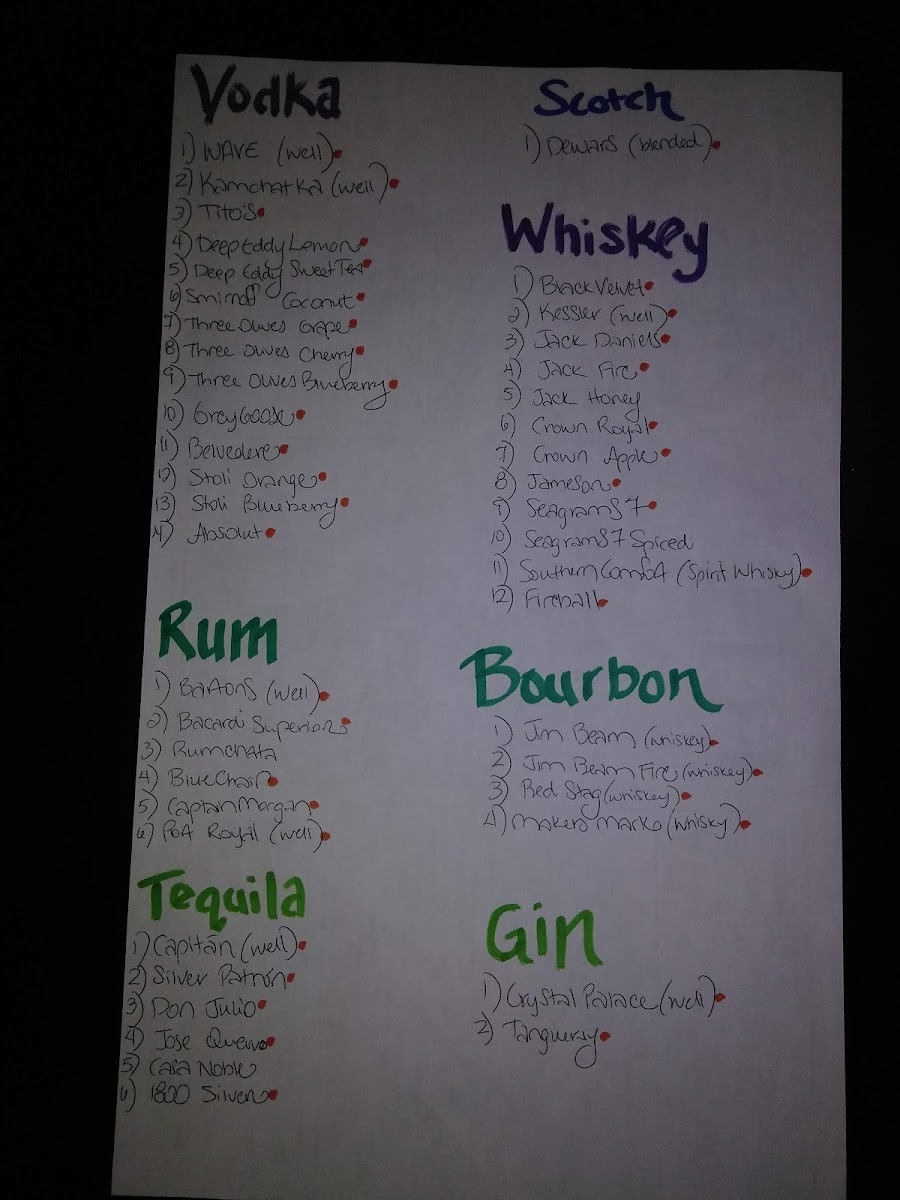 Vodka
1) WAVE (well)
2) Kamchatka (well)
3) Tito's
4) Deep Eddy Lemon
5) Deep Eddy Sweet Tea
6) Smirnoff Coconut
7) Three Olives Grape
8) Three Olives Cherry
9) Three Olives Blueberry
10) Grey Goose
11) Belvedere
12) Stoli Orange
13) Stoli Blueberry
14) Absolut
Rum
1) Bartons (well)
2) Bacardi Superior
3) Rumchata
4) Blue Chair
5) Captain Morgan
6) Port Royal (well)
Tequila
1) Capitán (well)
2) Silver Patrón
3) Don Julio
4) Jose Quervo
5) Casa Noble
6) 1800 Silver
Scotch
1) Dewars (blended)
Whiskey
1) Black Velvet
2) Kessler (well)
3) Jack Daniels
4) Jack Fire
5) Jack Honey
6) Crown Royal
7) Crown Apple
8) Jameson
9) Seagrams 7
10) Seagrams 7 Spiced
11) Southern Comfort (Spirit Whisky)
12) Fireball
Bourbon
1) Jim Beam (whiskey)
2) Jim Beam Fire (whiskey)
3) Red Stag (whiskey)
4) Makers Mark (whisky)
Gin
1) Crystal Palace (well)
2) Tangueray